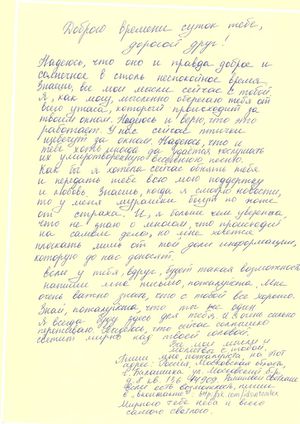 Доброго времени суток тебе,
дорогой друг!
Надеюсь, что оно и правда доброе и
солнечное в столь неспокойное время.
Знаешь, все мои мысли сейчас с тобой.
Я, как могу, мысленно оберегаю тебя от
всего ужаса, который происходит за
твоим окном. Надеюсь и верю, что это
работает. У нас сейчас птички
щебечут за окном. Надеюсь, что и
тебе тоже иногда да удаётся послушать
их умиротворяющую весеннюю песню.
Как бы я хотела сейчас обнять тебя
и передать тебе всю мою поддержку
и любовь. Знаешь, когда я смотрю новости,
то у меня мурашки бегут по коже
от страха. И, я больше чем уверена,
что не знаю о многом, что происходит
на самом деле, но мне хочется
плакать лишь от той доли информации,
которую до нас доносят.
Если у тебя, вдруг, будет такая возможность,
напиши мне письмо, пожалуйста. Мне
очень важно знать, что с тобой все хорошо.
Знай, пожалуйста, что ты не один.
Я всегда буду рядом для тебя. и я очень сильно
переживаю. Надеюсь, что сейчас солнышко
светит мирно над твоей головой.
Все мои мысли и
молитвы с тобой.
Пиши мне, пожалуйста, на этот
адрес: Россия, Московская область,
г. Балашиха, ул. Московский б-р,
Если есть возможность, пиши
в
Мирного тебе неба и всего
самого светлого.